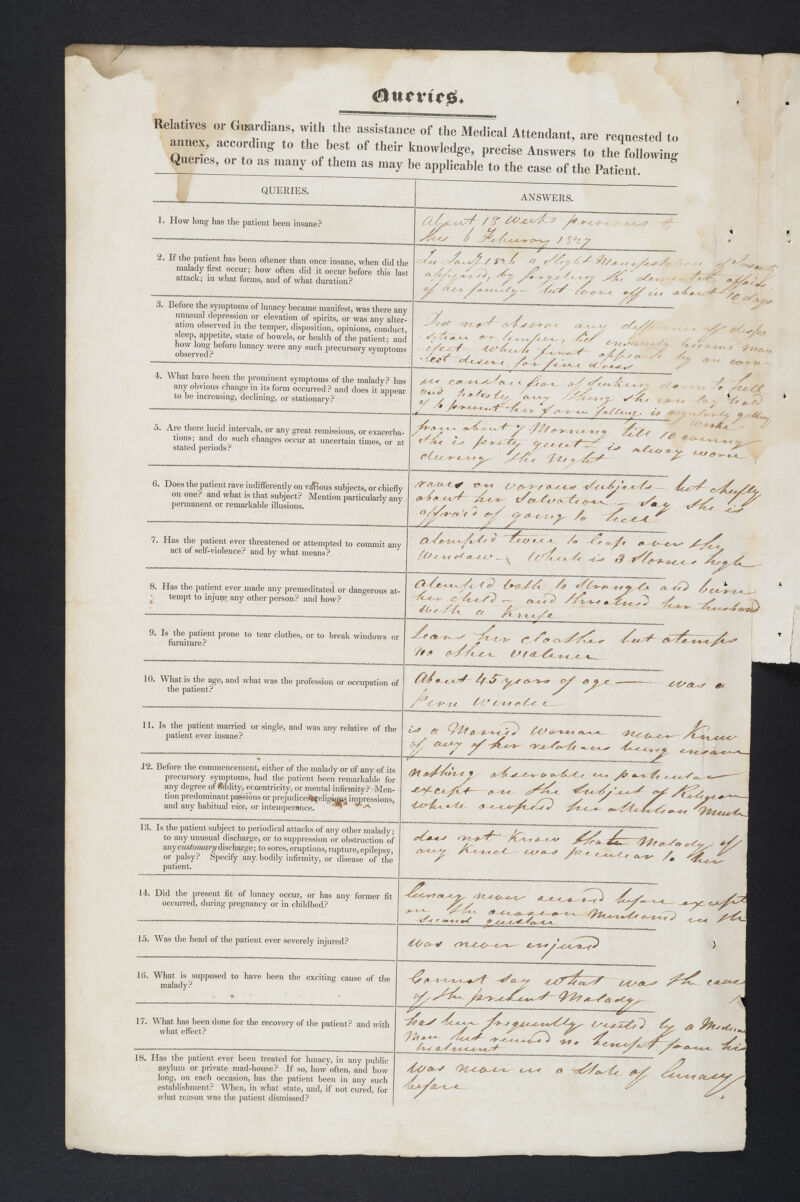 Queries.
Relatives or Guardians, with the assistance of the Medical Attendant, are requested to
annex, according to the best of their knowledge, precise Answers to the following
Queries, or to as many of them as may be applicable to the case of the Patient.
QUERIES.
ANSWERS.
1. How long has the patient been insane?
About 18 Weeks previous to
this 6 Feburary 1827
2. If the patient has been oftener than once insane, when did the
malady first occur; how often did it occur before this last
attack; in what forms, and of what duration?
In Jany 1826 a slight Manifestation of Insanity
appeared, by forgeting the domestic affairs
of her family but wore off in about 10 days
3. Before the symptoms of lunacy became manifest, was there any
unusual depression or elevation of spirits, or was any alter-
ation observed in the temper, disposition, opinions, conduct,
sleep, appetite, state of bowels, or health of the patient; and
how long before lunacy were any such precursory symptoms
observed?
Did not observe any difference of dispo
-sition or temper, her insanity became man
-ifest which first appeared by an
desire for fine dress
4. What have been the prominent symptoms of the malady? has
any obvious change in its form occurred? and does it appear
to be increasing, declining, or stationary?
in constan fear of sinking down to hell
and any thing she can lay hold
of to prevent her from falling. is regularly getting
worse
5. Are there lucid intervals, or any great remissions, or exacerba-
tions; and do such changes occur at uncertain times, or at
stated periods?
from about 7 Morning till 10 evening
She is prety quiet is alway worse
during the Night
6. Does the patient rave indifferently on various subjects, or chiefly
on one? and what is that subject? Mention particularly any
permanent or remarkable illusions.
raves on various subjects but cheifly
about her Salvation — Say She is
affraid of going to hell
7. Has the patient ever threatened or attempted to commit any
act of self-violence? and by what means?
atempted twice to leap over the
Window — Which is 3 Stories high
8. Has the patient ever made any premeditated or dangerous at-
tempt to injure any other person? and how?
Atempted both to Strangle and burn
her child — and threatned her husband
with a Knife
9. Is the patient prone to tear clothes, or to break windows or
furniture?
Tears her cloathes but atemps
no other violence
10. What is the age, and what was the profession or occupation of
the patient?
About 45 years of age — was a
Pirn Winder
11. Is the patient married or single, and was any relative of the
patient ever insane?
is a Married Woman never Knew
of any of her relations being insane
12. Before the commencement, either of the malady or of any of its
precursory symptoms, had the patient been remarkable for
any degree of oddity, eccentricity, or mental infirmity? Men-
tion predominant passions or prejudices, religious impressions,
and any habitual vice, or intemperance.
nothing observable in particular
except on the Subject of Religion
which occupied her attention Much
13. Is the patient subject to periodical attacks of any other malady;
to any unusual discharge, or to suppression or obstruction of
any customary discharge; to sores, eruptions, rupture, epilepsy,
or palsy? Specify any bodily infirmity, or disease of the
patient.
does not Know that a Malady of
any Kind was peculiar to her
14. Did the present fit of lunacy occur, or has any former fit
occurred, during pregnancy or in childbed?
Lunacy never occured before except
on the occasion Mentioned in the
Second question
15. Was the head of the patient ever severely injured?
Was never injured
16. What is supposed to have been the exciting cause of the
malady?
Cannot say what was the cause
of the present Malady
17. What has been done for the recovery of the patient? and with
what effect?
has been frequently visited by a Medical
Man but received no benefit from his
treatment
18. Has the patient ever been treated for lunacy, in any public
asylum or private mad-house? If so, how often, and how
long, on each occasion, has the patient been in any such
establishment? When, in what state, and, if not cured, for
what reason was the patient dismissed?
Was never in a State of lunacy
before